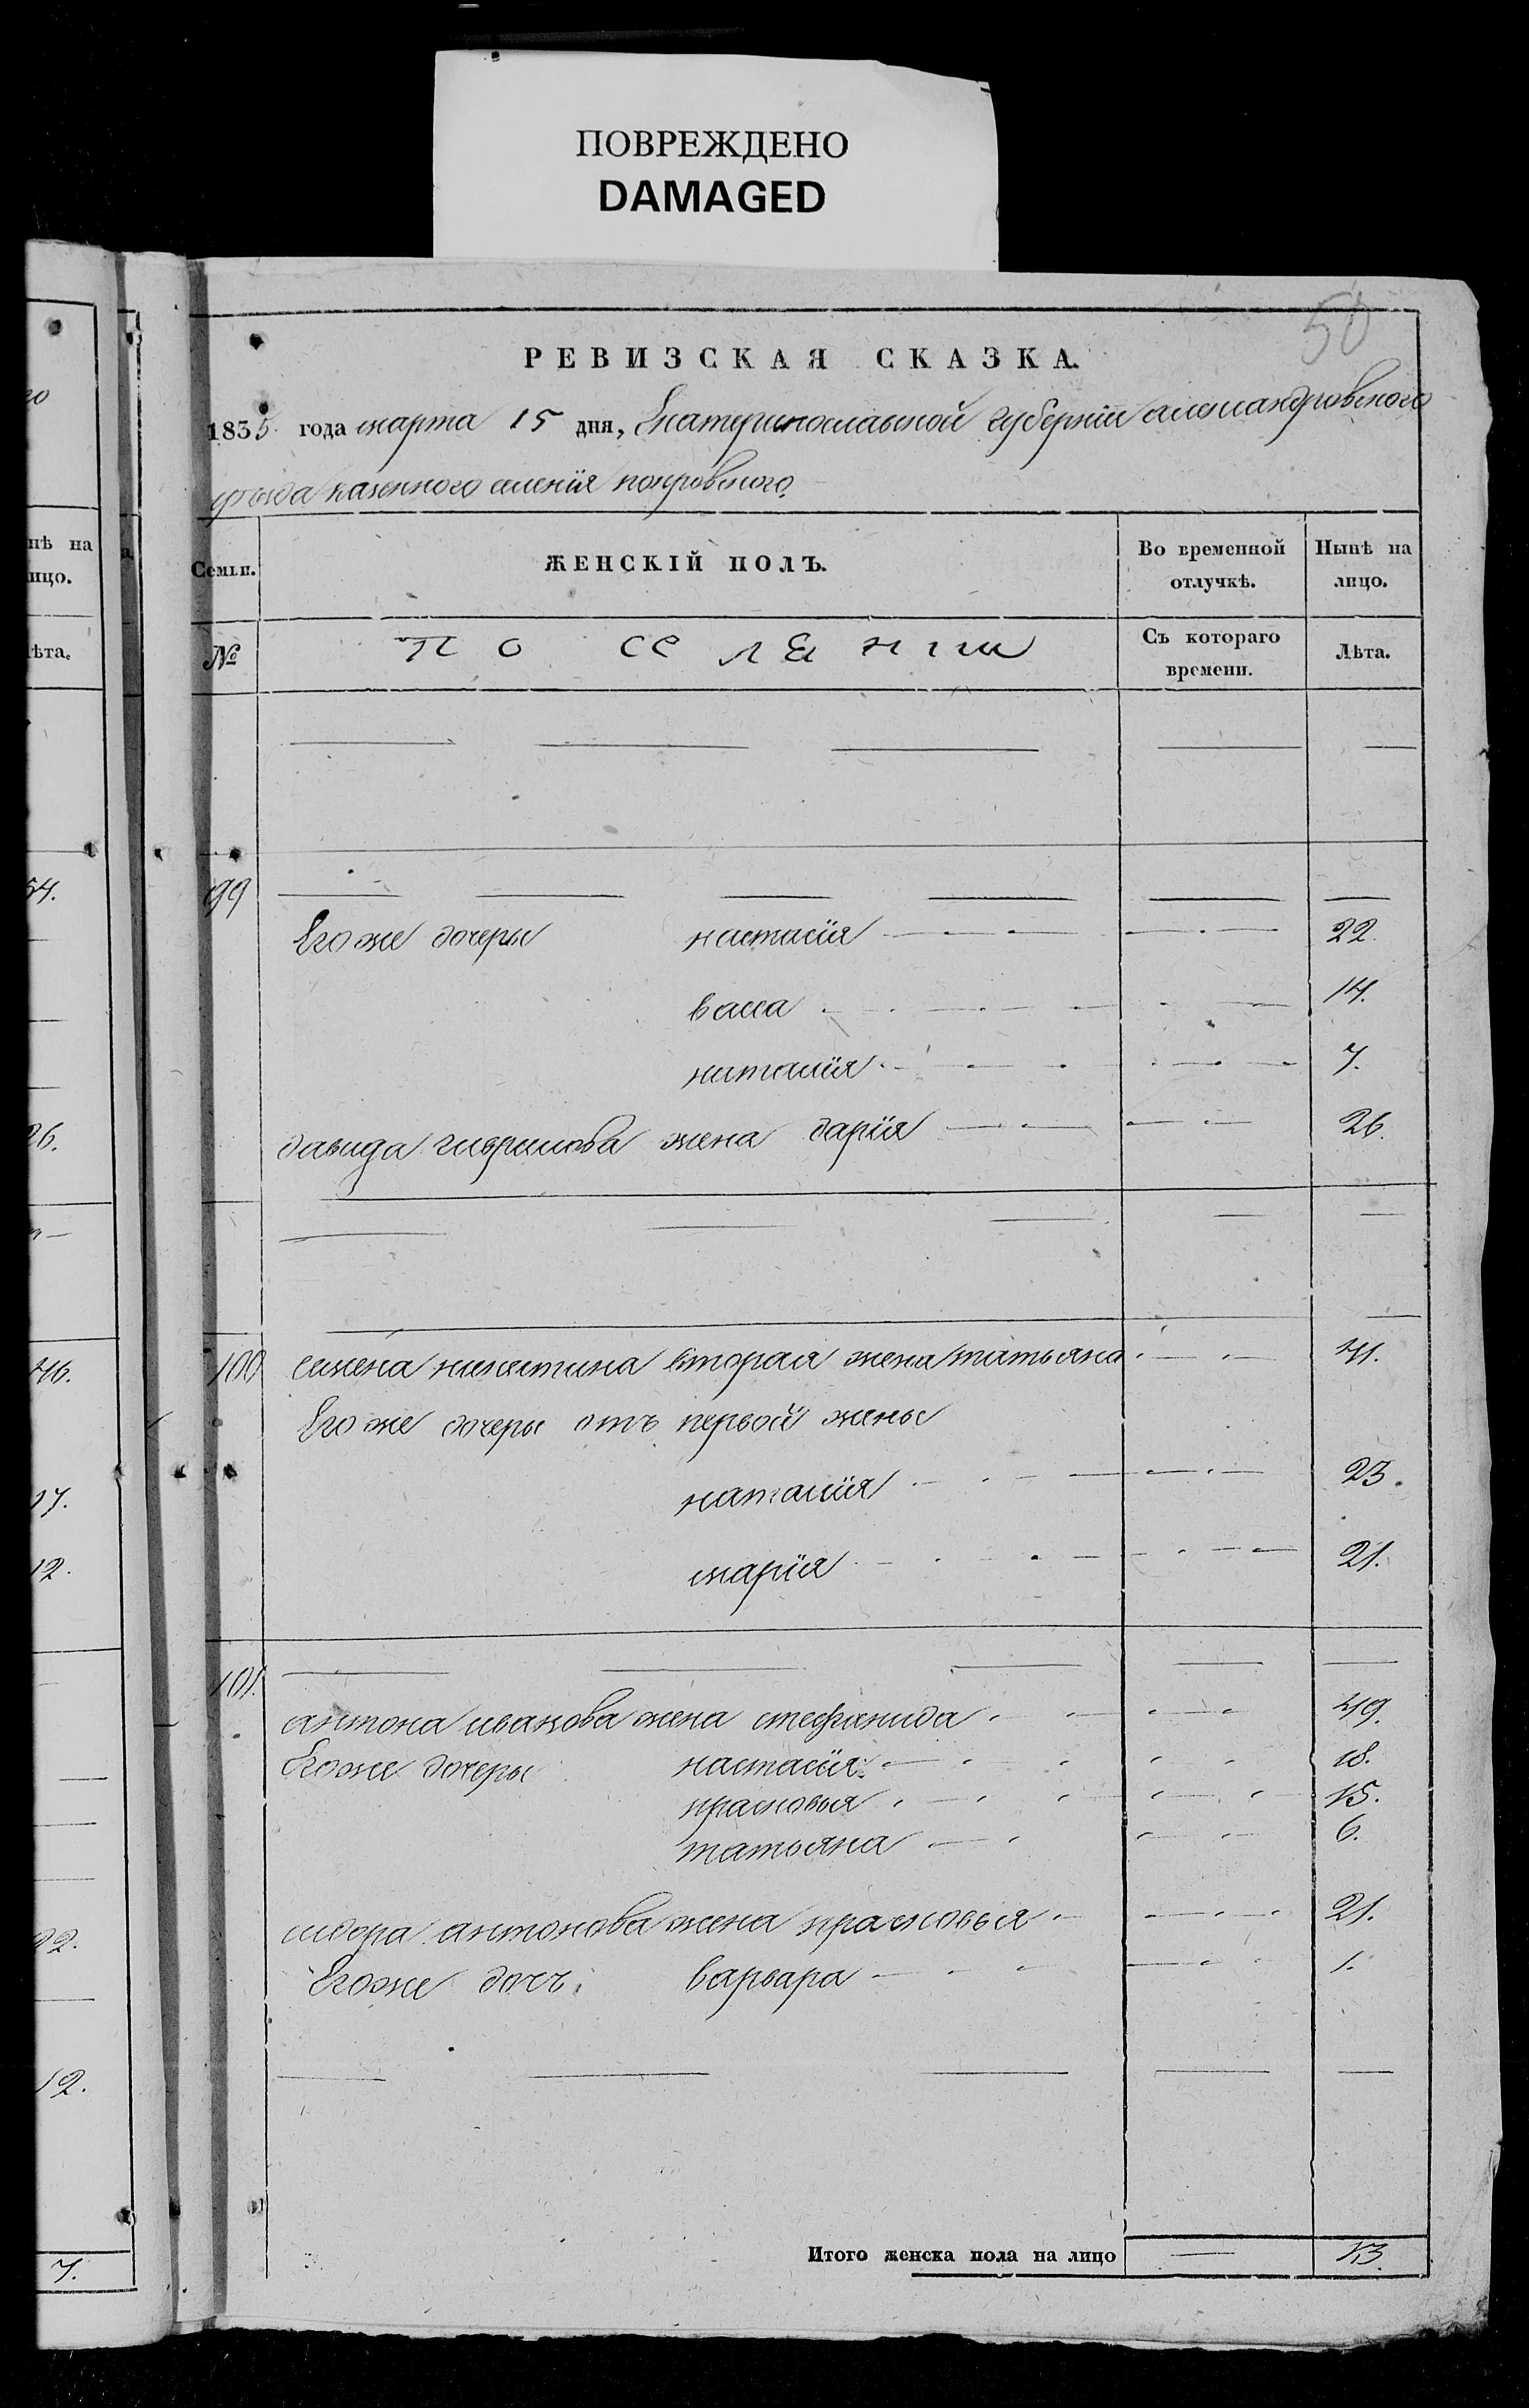 ПОВРЕЖДЕНО
DAMAGED
50
РЕВИЗСКАЯ СКАЗКА.
1835 года марта 15 дня, Екатеринославской губернïи александровского
уѣзда казенного селенïя покровского.
Семьи.
ЖЕНСКІЙ ПОЛЪ.
Во временной отлучкѣ.
Нынѣ на лицо.
№
Съ котораго времени.
Лѣта.
99
Его же дочеры настасïя 22.
васса 14.
наталïя 7.
давида гаврилова жена дарïя 26.
100 семена никитина вторая жена татьяна 41.
Его же дочеры отъ первой жены
наталïя 23.
марïя 21.
101.
антона иванова жена стефанида 49.
Его же дочеры настасïя 18.
прасковья 15.
татьяна 6.
сидора антонова жена прасковья 21.
Его же дочь варвара 1.
Итого женска пола на лицо 13.
нѣ на
ицо.
ѣта.
54.
26.
46.
17.
12.
22.
12.
7.